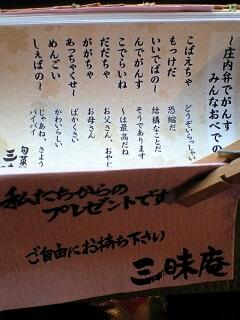 ～庄内弁でがんす
みんなおべでの
こばえちゃ
どうぞいらっしゃい
もっけだ
恐縮だ
いいでばの～
結構なことだ
んでがんす
そうであります
こでらいね
～は最高だね
だだちゃ
お父さん、おやじ
ががちゃ
お母さん
あっちゃくせ～
ばかくさい
めんごい
かわいらしい
しぇばの～
じゃあね、さよう
バイバイ
旬菜
三
私たちからの
プレゼントです
ご自由にお持ち下さい
三昧庵